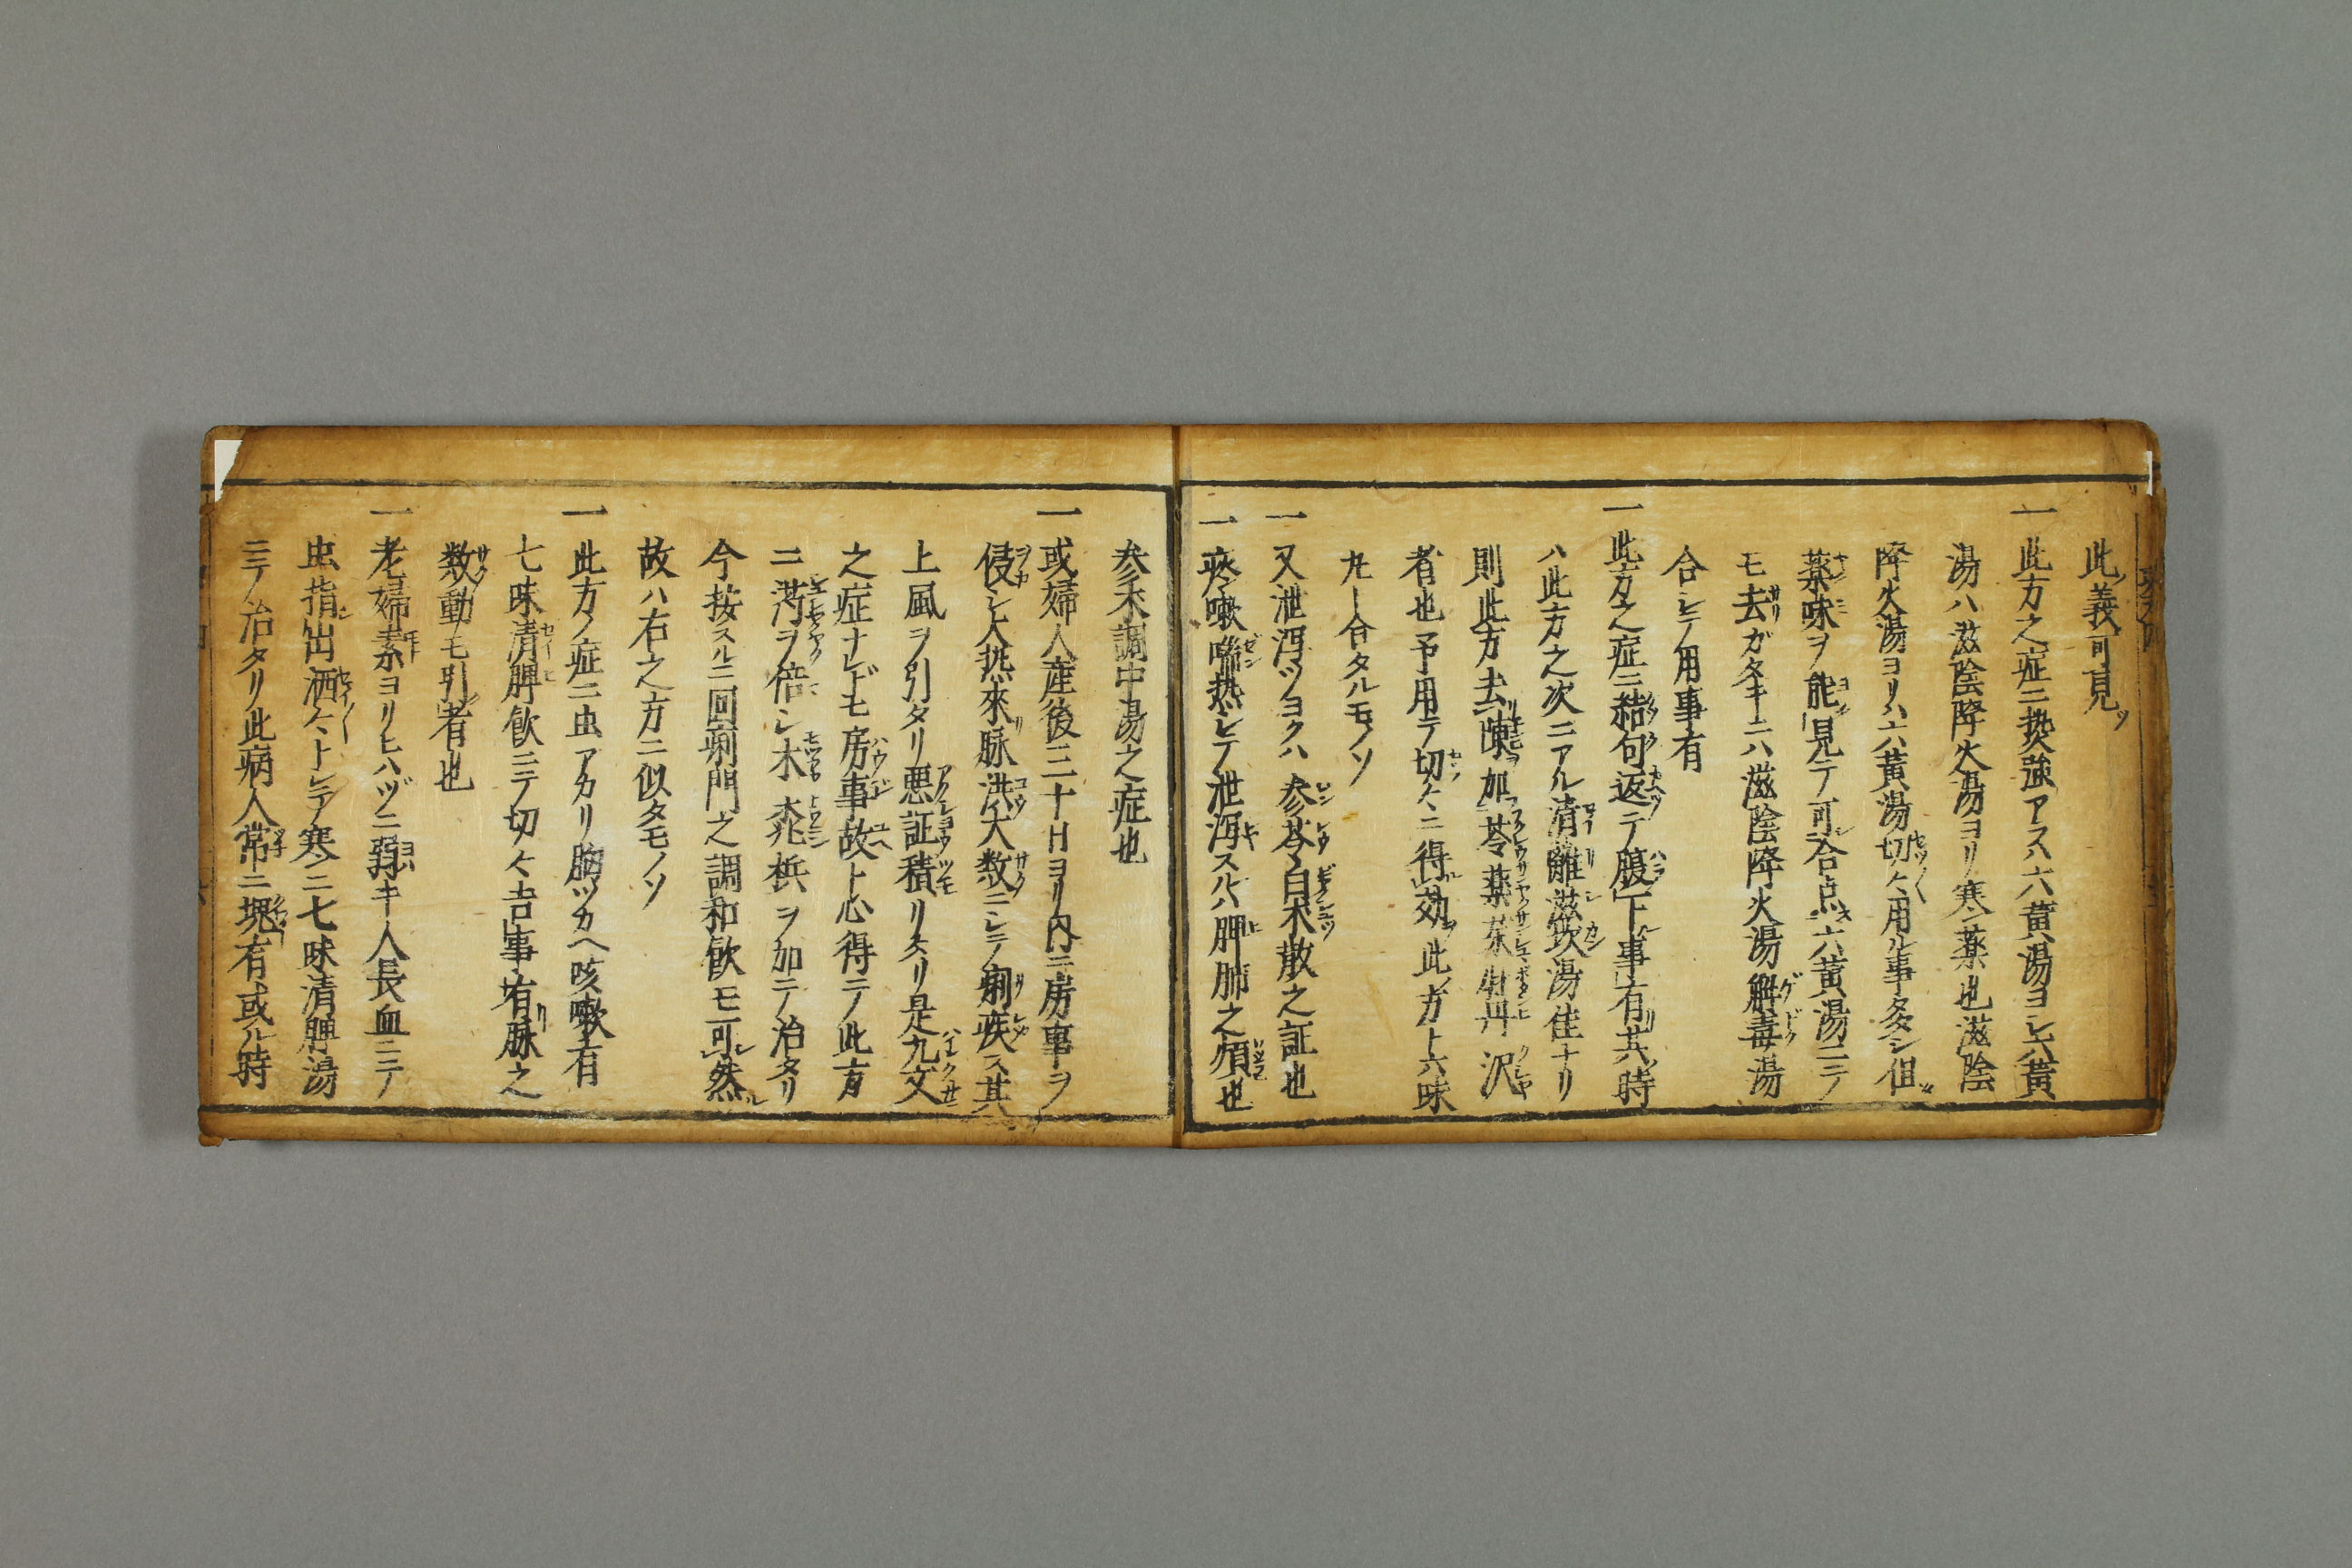 此義可見ツ
一此方之症ニ熱強アスハ六黄湯ヨシ六黄
湯ハ滋陰降火湯ヨリ寒薬也滋陰
降火湯ヨリハ六黄湯切々用ル事多シ但
薬味ヲ能見テ可合点六黄湯ニテ
モ去ガタキニハ滋陰降火湯解毒湯
合シテ用事有
一此方之症ニ結句返テ腹下事有其時
ハ此方之次ニアル清離滋坎湯佳ナリ
則此方去陳加苓薬茱牡丹沢
者也予用テ切々ニ得効此方ト六味
丸ト合タルモノソ
一又泄瀉ツヨクハ参苓白朮散之証也
一痰嗽喘熱シテ泄瀉スルハ脾肺之煩也
参朮調中湯之症也
一或婦人産後三十日ヨリ内ニ房事ヲ
侵シ大熱來脉洪大数ニシテ痢疾ス其
上風ヲ引タリ悪証積リタリ是九文
之症ナレドモ房事故ト心得テ此方
ニ芍ヲ倍シ木 桃 梹ヲ加ニテ治タリ
今按スルニ回痢門之調和飲モ可然
故ハ右之方ニ似タモノソ
一此方ノ症ニ虫アカリ胸ツカヘ咳嗽有
七味清脾飲ニテ切々吉事有脉之
数動モ引者也
一老婦素ヨリヒハヅニ弱キ人長血ニテ
虫指出洒々トシテ寒ニ七味清脾湯
ニテ治タリ此病人常ニ塊有或ル時